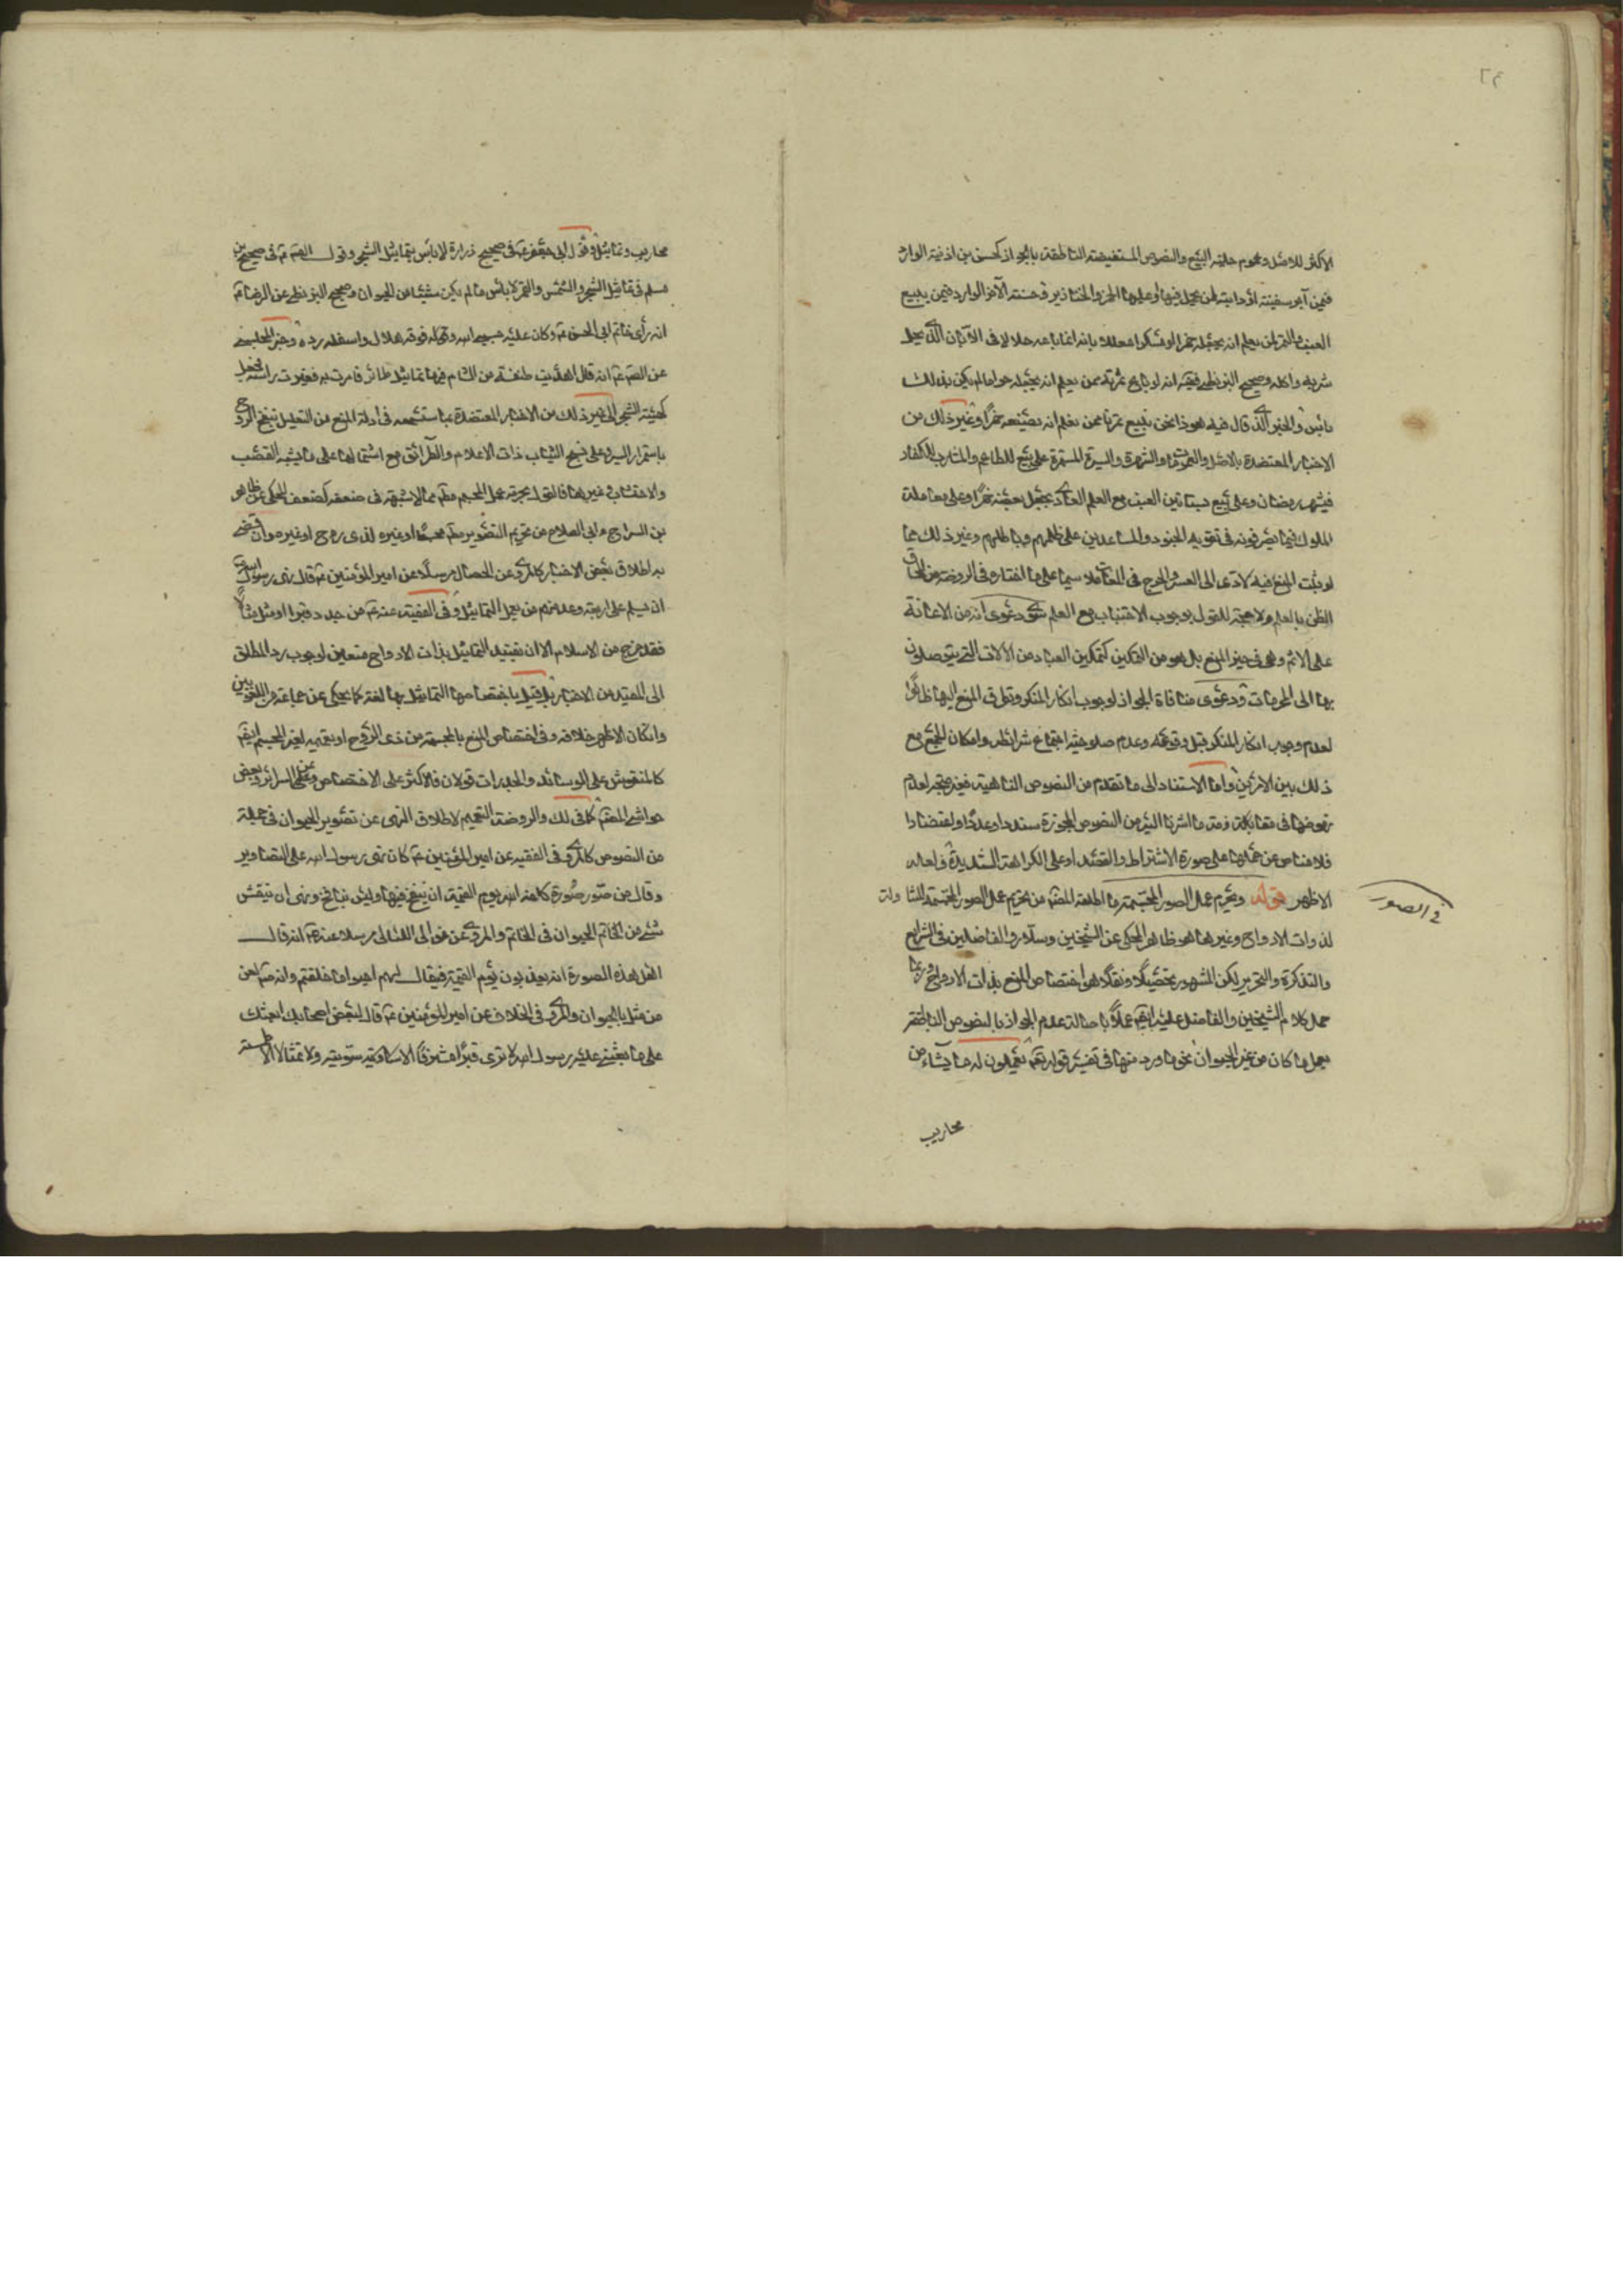 ٢٩
الاكثر للاصل وعموم حلية البيع والنصوص المستفيضة الناطقة بالجواز كحسن بن اذينة الوارد
فيمن آجر سفينته او دابته لمن يحمل فيها او عليها الخمر والخنازير وحسنته الآخر الوارد فيمن يبيع
العنب والتمر لمن يعلم انه يجعله خمرا او سكرا معللا بانه انما باعه حلالا في الابان الذي يحل
شربه واكله وصحيح البزنطي فيه انه لو باع ثمرته ممن يعلم انه يجعله حراما لم يكن بذلك
بأس والخبر الذي قال فيه هو ذا نحن نبيع تمرنا ممن نعلم انه يصنعه خمرا وغير ذلك من
الاخبار المعتضدة بالاصل والعمومات والشهرة والسيرة المستمرة على بيع المطاعم والمشارب للكفار
في شهر رمضان وعلى بيع بساتين العنب مع العلم العادي بجعل بعضه خمرا وعلى معاملة
الملوك فيما يصرفونه في تقوية الجنود والمساعدين على ظلمهم وباطلهم وغير ذلك مما
لو ثبت المنع فيه لادى الى العسر والحرج في المقام لا سيما على ما اختاره في الروضة من الحاق
الظن بالعلم ولا حجة للقول بوجوب الاجتناب مع العلم سوى دعوى انه من الاعانة
على الاثم وهي في حيز المنع بل هو من التمكين كتمكين العباد من الآلات التي يتوصلون
بها الى المحرمات ودعوى منافاة الجواز لوجوب انكار المنكر وتطرق المنع اليها ظاهرا
لعدم وجوب انكار المنكر قبل وقوعه وعدم صلوحية اجتماع شرائطه وامكان الجمع مع
ذلك بين الامرين واما الاستناد الى ما تقدم من النصوص الناهية فغير متجه لعدم
نهوضها في مقابلة ما اشرنا اليه من النصوص المجوزة سندا وعددا واعتضادا
فلا مناص عن حملها على صورة الاشتراط والقصد او على الكراهة الشديدة ولعله
الاظهر قوله ويحرم عمل الصور المجسمة ما اطلقه المصنف من تحريم عمل الصور المجسمة الشاملة
في الصور
لذوات الارواح وغيرها هو ظاهر المحكى عن الشيخين وسلار والفاضلين في الشرايع
والتذكرة والتحرير لكن المشهور تحصيلا ونقلا هو اختصاص المنع بذات الارواح وربما
حمل كلام الشيخين والفاضل عليه ايضا عملا باصالة عدم الجواز بالنصوص الناطقة
بحل ما كان من غير الحيوان نحو ما ورد منها في تفسير قوله تعالى يعملون له ما يشاء من
محاريب
محاريب وتماثيل وقول ابي جعفر ع في صحيح زرارة لا بأس بتماثيل الشجر وقول الصم ع في صحيح بن
مسلم في تماثيل الشجر والشمس والقمر لا بأس ما لم يكن شيئا من الحيوان وصحيح البزنطي عن الرضا ع
انه رأى خاتم ابي الحسن ع وكان عليه حسبي الله وفوقه هلال واسفله وردة وخبر الحلبي
عن الصم ع انه قال اهديت طنفسة من الشام فيها تماثيل طائر فامرت به فغيرت رأسه فجعل
كهيئة الشجر الى غير ذلك من الاخبار المعتضدة بما ستسمعه في ادلة المنع من التعليل بنفخ الروح
باستمرار السيرة على نسج الثياب ذات الاعلام والطرائق مع اشتمالها على ما يشبه القصب
والاخشاب وغيرها فالقول بحرمة عمل المجسم مط مما لا شبهة في ضعفه كضعف المحكى عن ظاهر
بن السراج وابي الصلاح من تحريم التصوير مط مجسما او غيره لذي روح او غيره وان قضى
به اطلاق بعض الاخبار كالمروي عن الخصال مرسلا عن امير المؤمنين ع قال نهى رسول الله ص
ان يسلم على اربعة وعد منهم من يعمل التماثيل وفي الفقيه عنه ع من جدد قبرا او مثل مثالا
فقد خرج من الاسلام الا ان تقييد التماثيل بذات الارواح متعين لوجوب رد المطلق
الى المقيد من الاخبار بل قيل باختصاص التماثيل بها لغة كما يحكى عن جماعة من اللغويين
وان كان الاظهر خلافه وفي اختصاص المنع بالمجسمة من ذي الروح او تعميمه لغير المجسم ايضا
كالمنقوش على الوسائد والجدرات قولان فالاكثر على الاختصاص وعن السرائر وبعض
حواشي المتقدم كما في لك والروضة التعميم لاطلاق النهي عن تصوير الحيوان في جملة
من النصوص كالمروي في الفقيه عن امير المؤمنين ع كان نهى رسول الله على التصاوير
وقال من صور صورة كلفه الله يوم القيمة ان ينفخ فيها وليس بنافخ ونهى ان ينقش
شيء من الحيوان في الخاتم والمروي عن غوالي اللئالي مرسلا عنه ص انه قال
اهل هذه الصورة انه يعذبون يوم القيمة فيقال لهم احيوا ما خلقتم وانه ص لعن
من مثل بالحيوان والمروي في الخلاف عن امير المؤمنين ع قال لبعض اصحابه ابعثك
على ما بعثني عليه رسول الله لا ترى قبرا مشرفا الا سويته ولا تمثالا الا طمسته